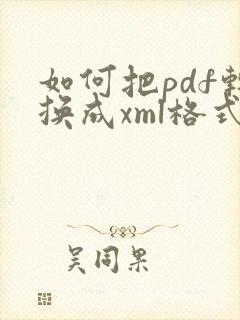 如何把pdf转
换成xml格式
吴同果